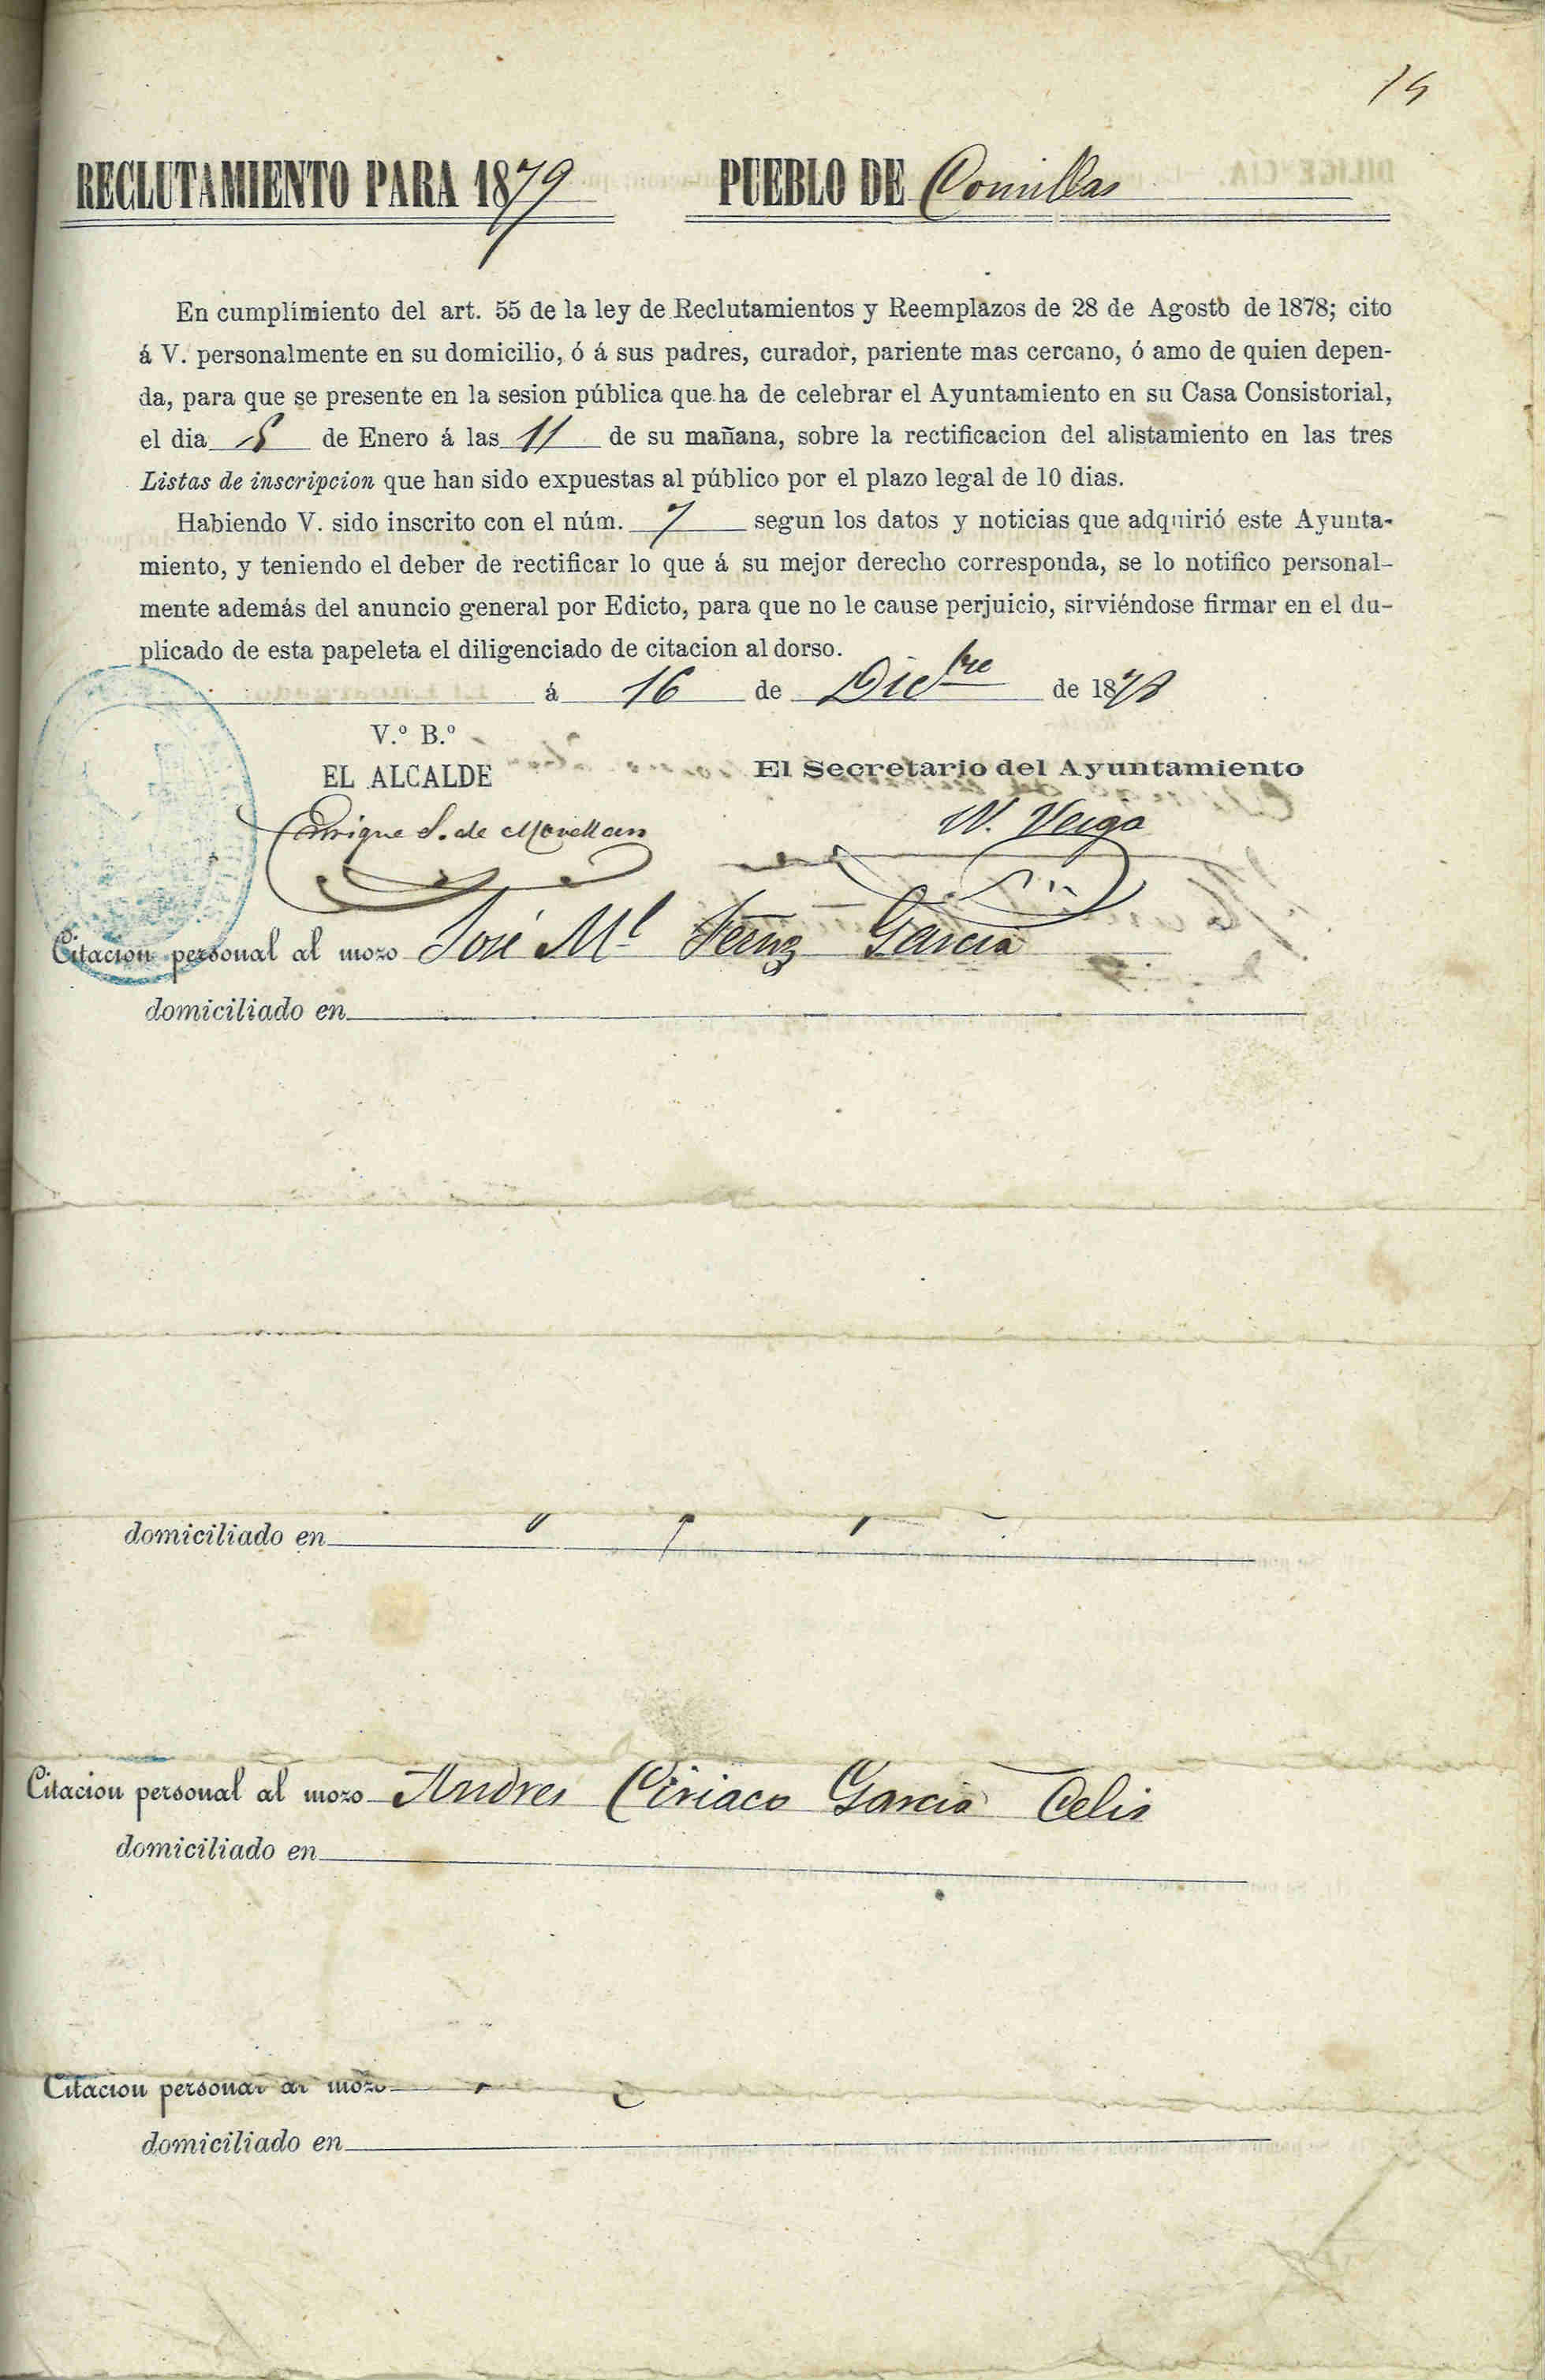 14
RECLUTAMIENTO PARA 1879 PUEBLO DE Comillas
En cumplimiento del art. 55 de la ley de Reclutamientos y Reemplazos de 28 de Agosto de 1878; cito
á V. personalmente en su domicilio, ó á sus padres, curador, pariente mas cercano, ó amo de quien depen-
da, para que se presente en la sesion pública que ha de celebrar el Ayuntamiento en su Casa Consistorial,
el dia 5 de Enero á las 11 de su mañana, sobre la rectificacion del alistamiento en las tres
Listas de inscripcion que han sido expuestas al público por el plazo legal de 10 dias.
Habiendo V. sido inscrito con el núm. 7 segun los datos y noticias que adquirió este Ayunta-
miento, y teniendo el deber de rectificar lo que á su mejor derecho corresponda, se lo notifico personal-
mente además del anuncio general por Edicto, para que no le cause perjuicio, sirviéndose firmar en el du-
plicado de esta papeleta el diligenciado de citacion al dorso.
á 16 de Dicbre de 1878
V.º B.º
EL ALCALDE El Secretario del Ayuntamiento
Enrique S. de Movellan W. Veiga
Citacion personal al mozo José Ml Fernz Garcia
domiciliado en
domiciliado en
Citacion personal al mozo Andres Ciriaco Garcia Celis
domiciliado en
Citacion personal al mozo
domiciliado en